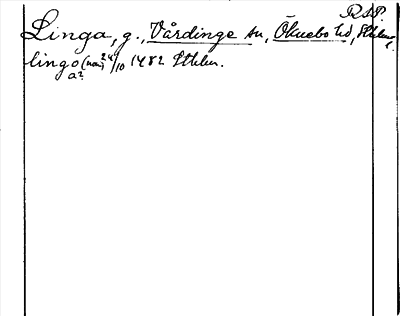 R.S.P.
Linga, g., Vårdinge sn, Öknebo hd, Sthlms l.
lingo (nom) 24/10 1482 Sthlm.
a?